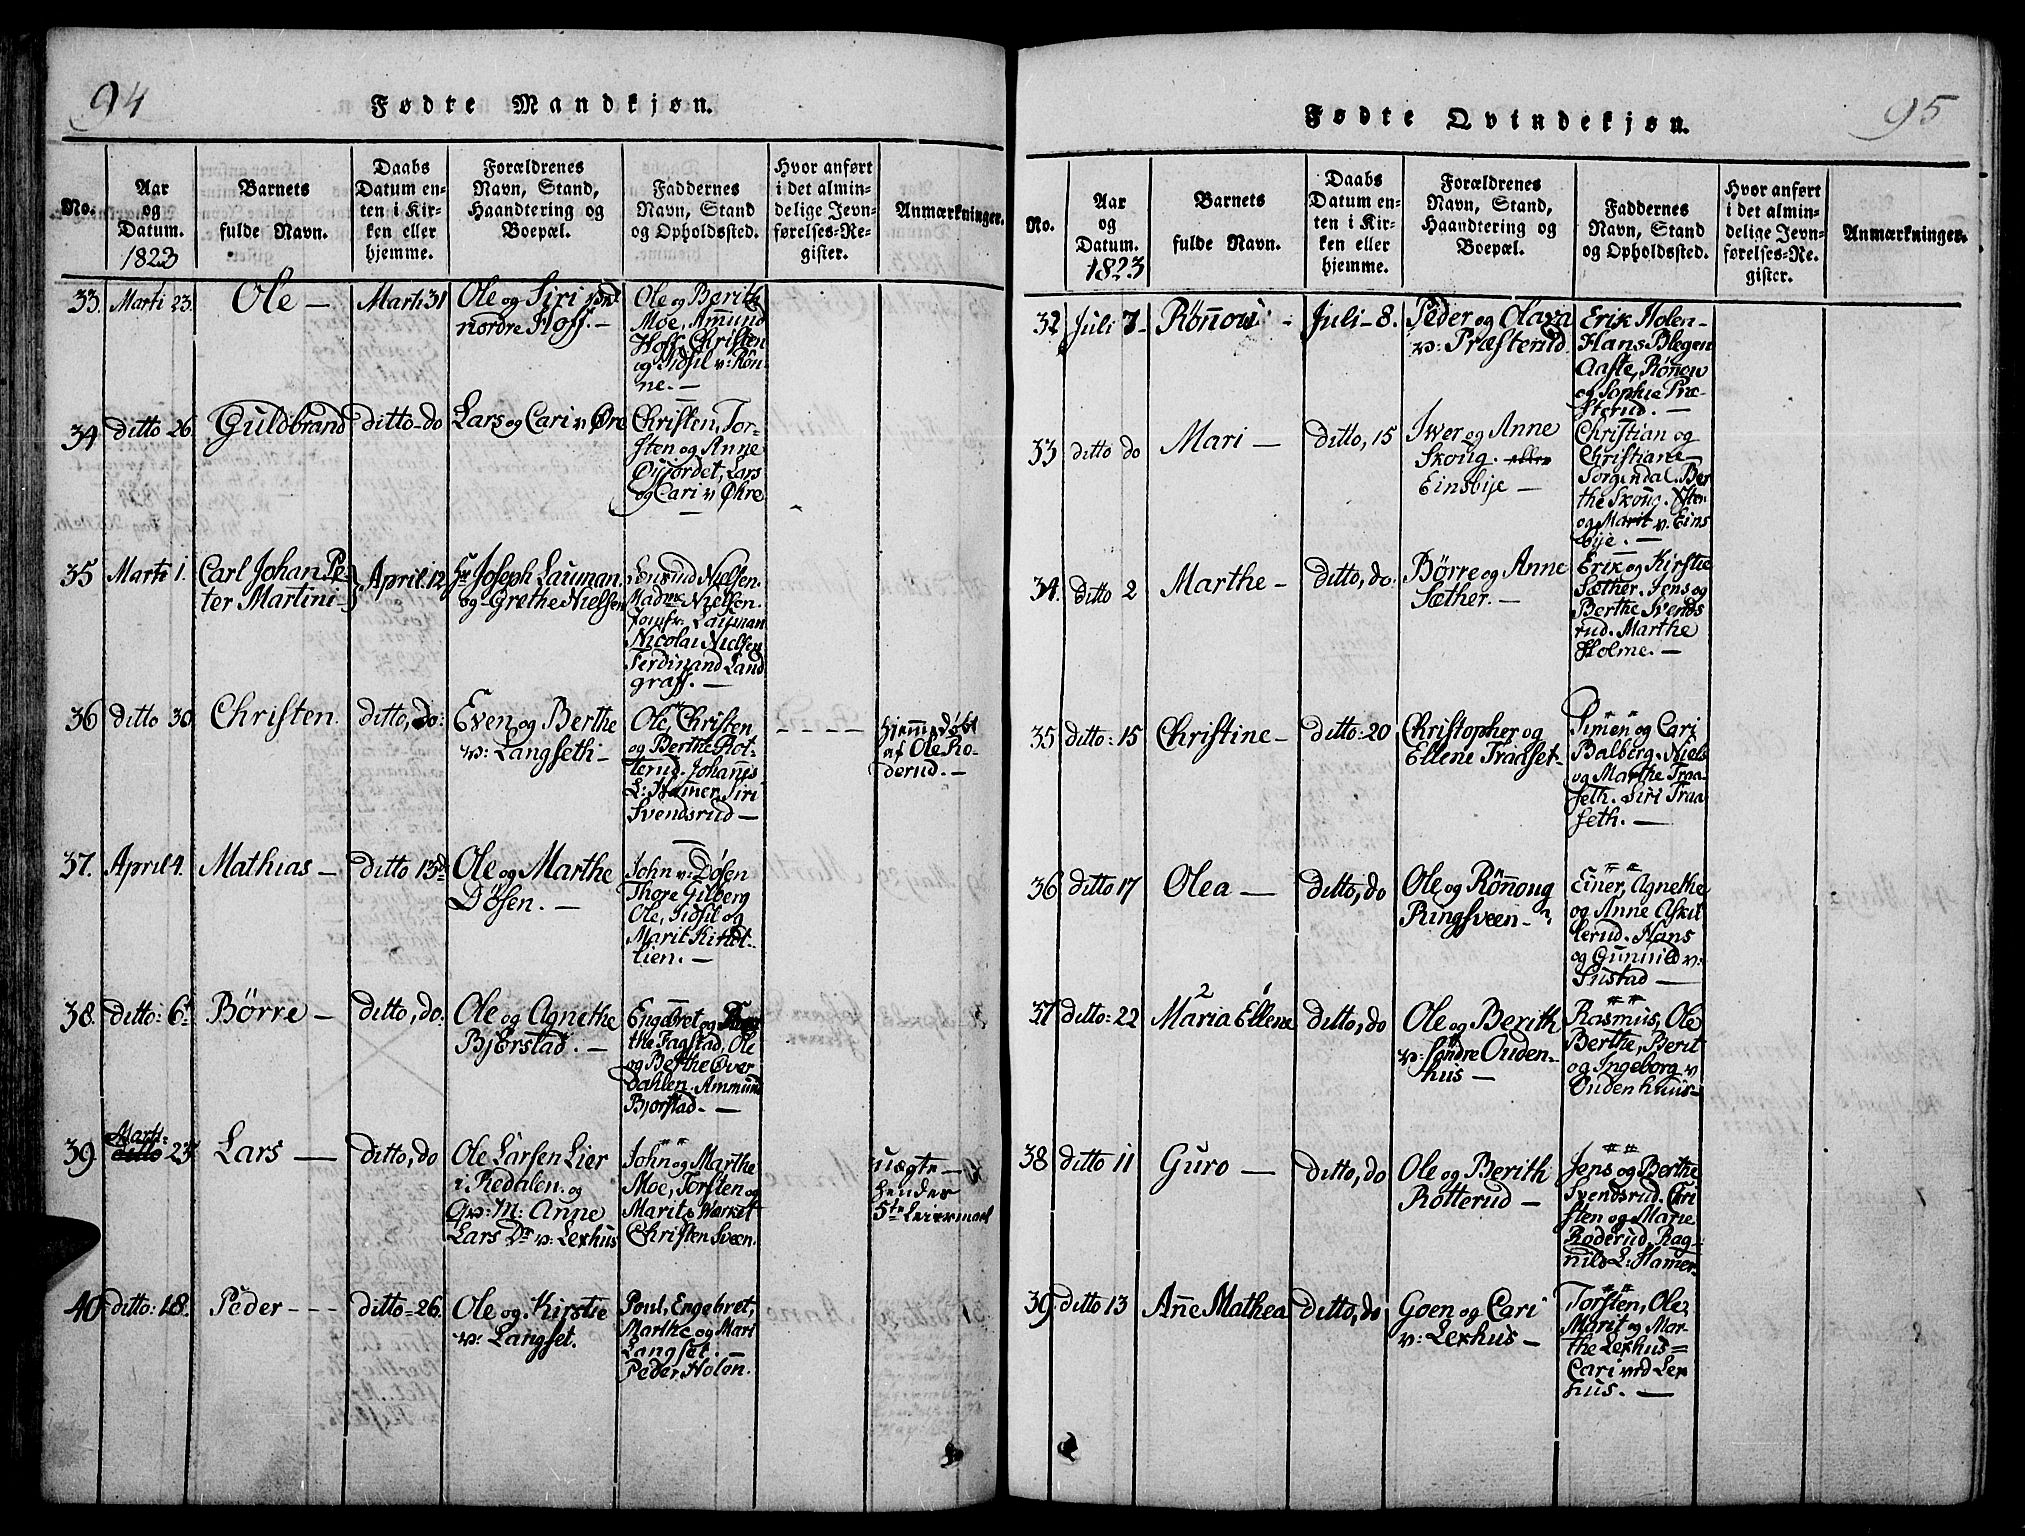 94
Fødte Mandkjøn.
No.
Aar
og
Datum.
1823
Barnets
fulde Navn.
Daabs
Datum en-
ten i Kir-
ken eller
hjemme.
Forældrenes
Navn, Stand,
Haandtering og
Boepæl.
Faddernes
Navn, Stand
og Opholdssted.
Hvor anført
i det almin-
delige Jevn-
førelses-Re-
gister.
Anmærkninger.
33. Marti 23.
Ole —
Marti 31
Ole og Siri
nordre Hoff. —
Ole og Berit
Moe, Amund
Hoff. Christen
og Sidsil v: Rön-
ne. —
34 ditto 26
Guldbrand
ditto - do
Lars og Cari v. Øre
Christen, Tor-
sten og Anne
Öifjordet, Lars
og Cari v Øhre
—
35 Marti 1.
Carl Johan Pe-
ter Martini -
April 12
Hr Joseph Lauman
og Grethe Nielsen
Nielsen.
Madme Nielsen.
Jomfr. Lauman
Nicolai Nielsen
Ferdinand Land
graff. —
36 ditto 30
Christen.
ditto, do:
Even og Berthe
v: Langseth -
Ole Christen
og Berthe Rot-
terud. Johannes
L: Hamer. Siri
Svendsrud —
- - - -
hjemmedøbt
af Ole Ro-
derud. —
37. April 4.
Mathias —
ditto 13d
Ole og Marthe
Dösen. —
John v: Dösen
Thore Gilberg
Ole, Sidsil og
Marit Kindt-
lien. —
38. ditto: 6t
Börre —
ditto, do:
Ole og Agnethe
Bjørstad. —
Engebret og
the Fagstad, Ole
og Berthe Över
Dahlen. Ammund
Bjorstad. —
39. Marti-
ditto 23
Lars —
ditto, do
Ole Larsen Lier
i Redalen. og
Qv: M: Anne
Lars Dr v: Lerhus
John og Marthe
Moe, Torsten og
Marit
Christen Sveen.
uægte —
hendes
5te Leiermaal
40 ditto: 18.
Peder - - -
ditto - 26.
Ole og Kirstie
v: Langset.
Poul, Engebret,
Marthe og Mari
Langset. —
Peder Holön.
95
Fødte Qvindekjøn.
No.
Aar
og
Datum.
1823
Barnets
fulde Navn.
Daabs
Datum en-
ten i Kir-
ken eller
hjemme.
Forældrenes
Navn, Stand,
Haandtering og
Boepæl.
Faddernes
Navn, Stand
og Opholdssted.
Hvor anført
i det almin-
delige Jevn-
førelses-Re-
gister.
Anmærkninger.
32 Juli 7
Rönnou -
Juli - 8.
Peder og Olava
v: Præsterud
Erik Holen -
Hans Blegen
Aaste, Rönou
og Sophie Præ-
sterud. —
33 ditto do
Mari —
ditto, 15
Iwer og Anne
Skoug. eller
Einsbye —
Christian og
Christiane
Sorgendal. Ber
the Skoug.
og Marit v. Eins
bye. —
34. ditto 2
Marthe —
ditto, do:
Börre og Anne
Sæther. —
Erik og Kirstie
Sæther. Jens og
Berthe Svends
rud. Marthe
Holme. —
35 ditto: 15
Christine -
ditto: 20
Christopher og
Ellene Traaset -
Simen og Cari
Balberg. Niels
og Marthe Traa-
seth. Siri Traa
seth. —
36 ditto 17
Olea —
ditto, do
Ole og Rönnoug
Ringsveen -
Einer, Agnethe
og Anne Askil
lerud. Hans
og Gunnild v:
Sustad —
37 ditto: 22
2 1
Maria Ellene
ditto, do
Ole og Berith
v: Söndre Ouden-
hus —
Rasmus, Ole
Berthe, Berit
og Ingeborg v
Ouden huus -
38 ditto 11
Guro —
ditto, do
Ole og Berith
Rotterud —
Jens og Berthe
Svendsrud. Chri
sten og Marie
Röderud. Rag-
nild L: Hamer.
39 ditto 13
Anne Mathea
ditto, do
Goen og Cari
v: Lerhus —
Torsten, Ole
Marit og Mar-
the Lerhus =
Cari ved Ler
hus. —